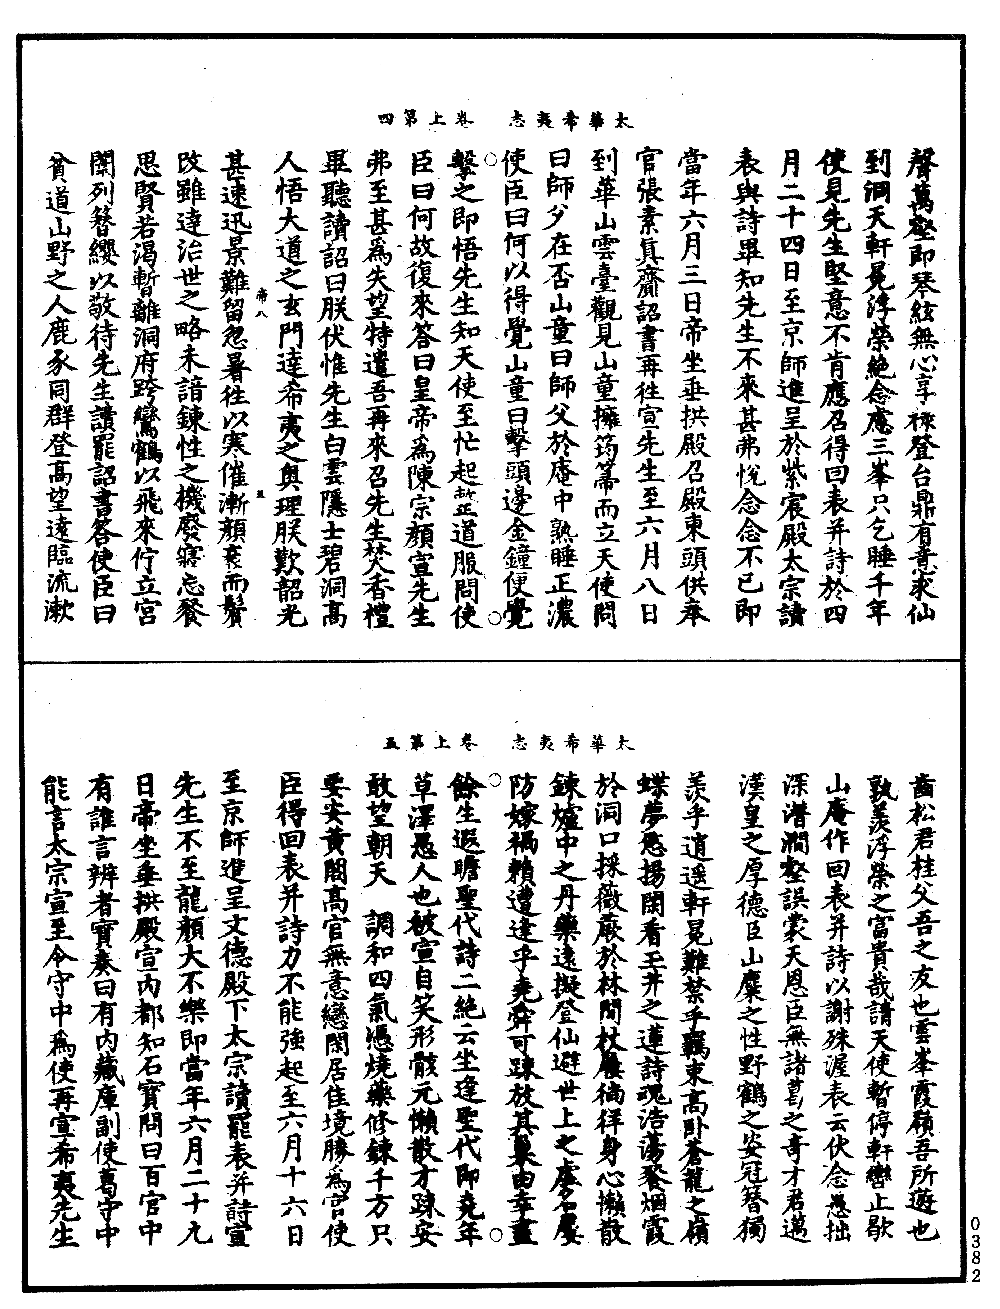 太華希夷志　卷上第四
聲萬壑即琴絃無心享祿登台鼎有意求仙
到洞天軒冕浮榮絕念慮三峯只乞睡千年
使見先生堅意不肯應召得回表并詩於四
月二十四日至京師進呈於紫宸殿太宗讀
表與詩畢知先生不來甚弗悅念念不已即
當年六月三日帝坐垂拱殿召殿東頭供奉
官張素真齎詔書再往宣先生至六月八日
到華山雲臺觀見山童擁筠箒而立天使問
曰師父在否山童曰師父於庵中熟睡正濃
使臣曰何以得覺山童曰擊頭邊金鐘便覺
擊之即悟先生知天使至忙起整道服問使
臣曰何故復來答曰皇帝為陳宗顏宣先生
弗至甚為失望特遣吾再來召先生焚香禮
畢聽讀詔曰朕伏惟先生白雲隱士碧洞高
人悟大道之玄門達希夷之奧理朕歎韶光
帝八
甚速迅景難留忽暑往以寒催漸顏衰而鬢
改雖達治世之略未諳鍊性之機廢寤忘餐
思賢若渴暫離洞府跨鸞鶴以飛來佇立宮
闈列簪纓以敬待先生讀罷詔書答使臣曰
貧道山野之人鹿豕同群登高望遠臨流漱
太華希夷志　卷上第五
齒松君桂父吾之友也雲峯霞嶺吾所遊也
孰羨浮榮之富貴哉請天使暫停軒轡止歇
山庵作回表并詩以謝殊渥表云伏念愚拙
深潛澗壑誤裳天恩臣無諸葛之奇才君邁
漢皇之厚德臣山麋之性野鶴之姿冠簪獨
羨乎逍遥軒冕難禁乎羈束高臥蒼龍之嶺
蝶夢悠揚閑看玉井之蓮詩魂浩蕩餐烟霞
於洞口採薇蕨於林間杖屨徜徉身心懶散
鍊爐中之丹藥遠擬登仙避世上之虛名屢
防嫁禍賴遭逢乎堯舜可踈放其巢由幸盡
餘生遐瞻聖代詩二絕云坐逢聖代即堯年
草澤愚人也被宣自笑形骸元懶散才踈安
敢望朝天　調和四氣憑燒藥修鍊千方只
要安黃閣高官無意戀閑居佳境勝為官使
臣得回表并詩力不能強起至六月十六日
至京師進呈文德殿下太宗讀罷表并詩宣
先生不至龍顏大不樂即當年六月二十九
日帝坐垂拱殿宣內都知石寶問曰百官中
有誰言辨者寶奏曰有內藏庫副使葛守中
能言太宗宣至令守中為使再宣希夷先生
0382